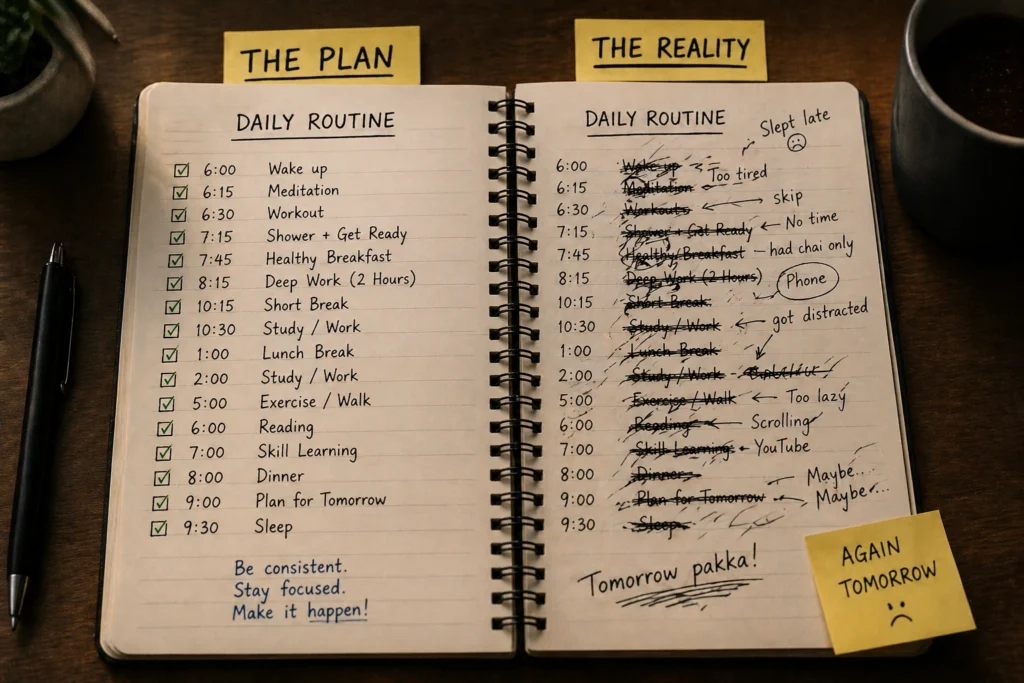 THE PLAN
DAILY ROUTINE
6:00 Wake up
6:15 Meditation
6:30 Workout
7:15 Shower + Get Ready
7:45 Healthy Breakfast
8:15 Deep Work (2 Hours)
10:15 Short Break
10:30 Study / Work
1:00 Lunch Break
2:00 Study / Work
5:00 Exercise / Walk
6:00 Reading
7:00 Skill Learning
8:00 Dinner
9:00 Plan for Tomorrow
9:30 Sleep
Be consistent.
Stay focused.
Make it happen!
THE REALITY
DAILY ROUTINE
Slept late
6:00 Wake up
Too tired
6:15 Meditation
6:30 Workouts skip
7:15 Shower + Get Ready No time
7:45 Healthy Breakfast had chai only
8:15 Deep Work (2 Hours) Phone
10:15 Short Break
10:30 Study / Work got distracted
1:00 Lunch Break
2:00 Study / Work
5:00 Exercise / Walk Too lazy
6:00 Reading Scrolling
7:00 Skill Learning YouTube
8:00 Dinner Maybe...
9:00 Plan for Tomorrow Maybe...
9:30 Sleep
Tomorrow pakka!
AGAIN
TOMORROW